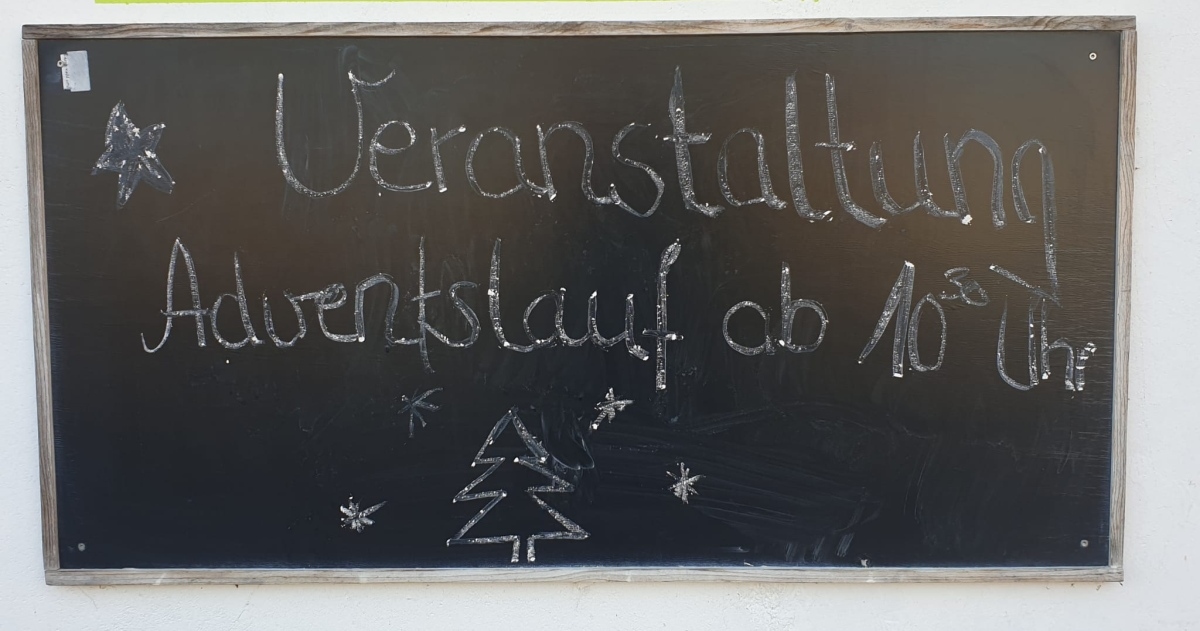 Veranstaltung
Adventslauf ab 10 Uhr